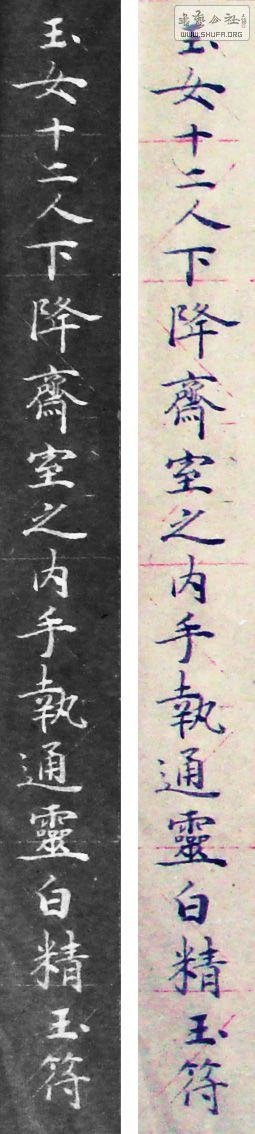 書藝公社
WWW.SHUFA.ORG
玉女十二人下降齋室之内手執通靈白精玉符
玉女十二人下降齋室之内手執通靈白精玉符